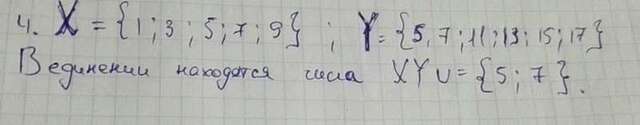 4. X = {1; 3; 5; 7; 9} ; Y = {5, 7; 11; 13; 15; 17}
В единении находятся числа X Y U = {5; 7}.